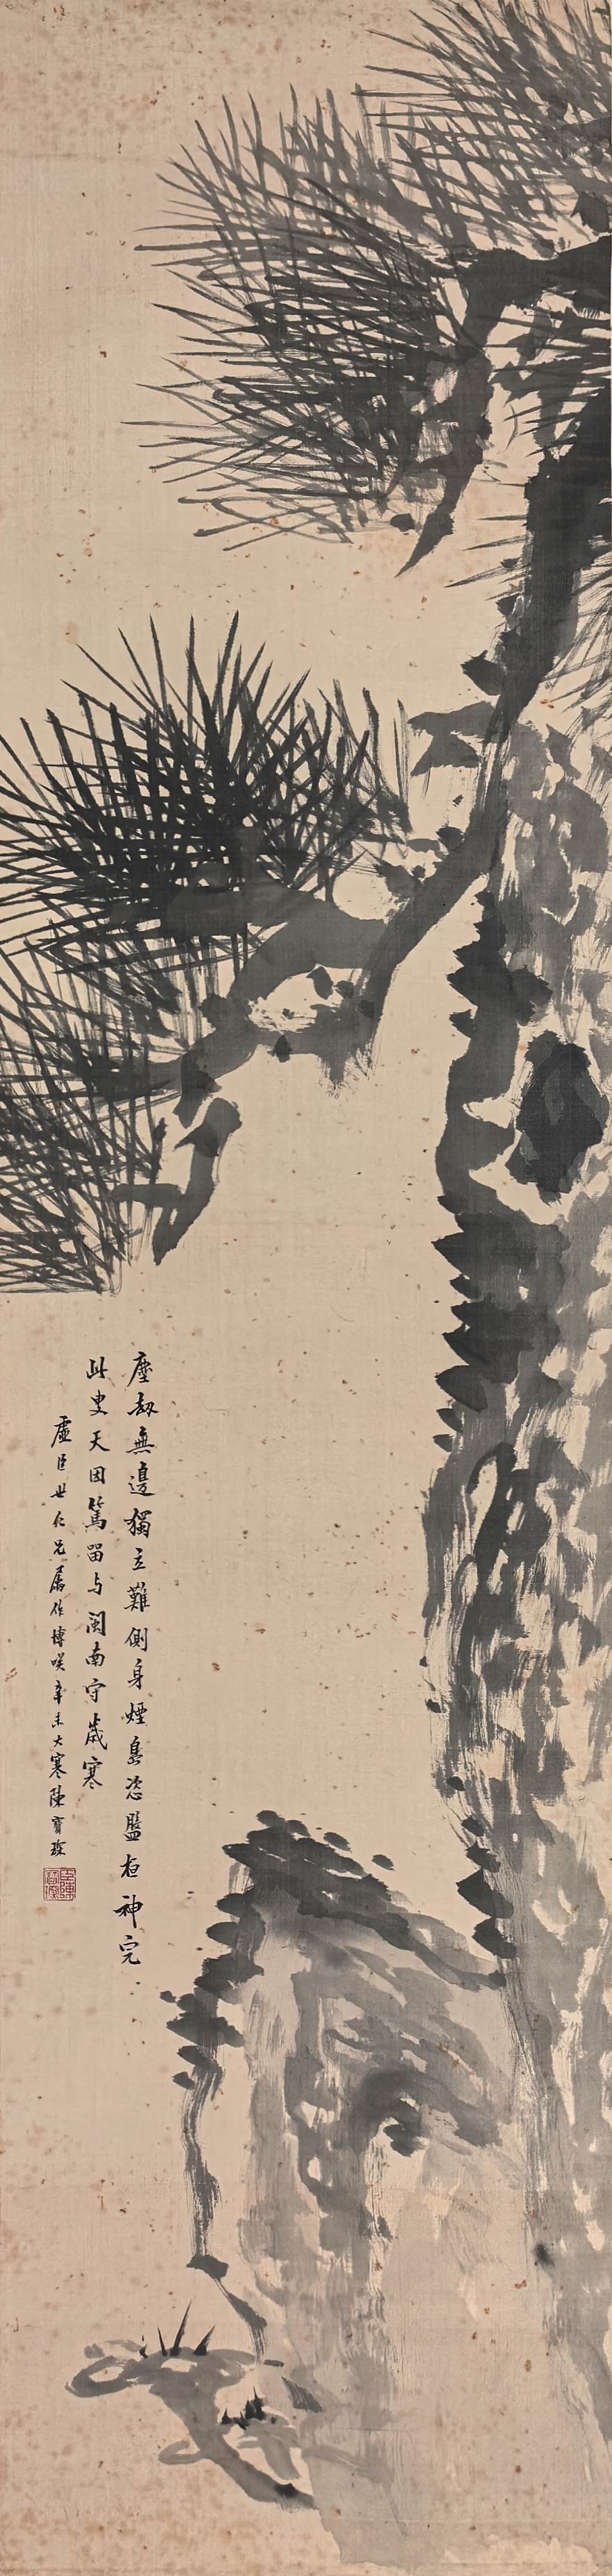 塵劫無邊獨立難側身煙島恣盤桓神完
此叟天因篤留与閩南守歲寒
虛臣世仁兄屬作博咲辛未大寒陳寶琛